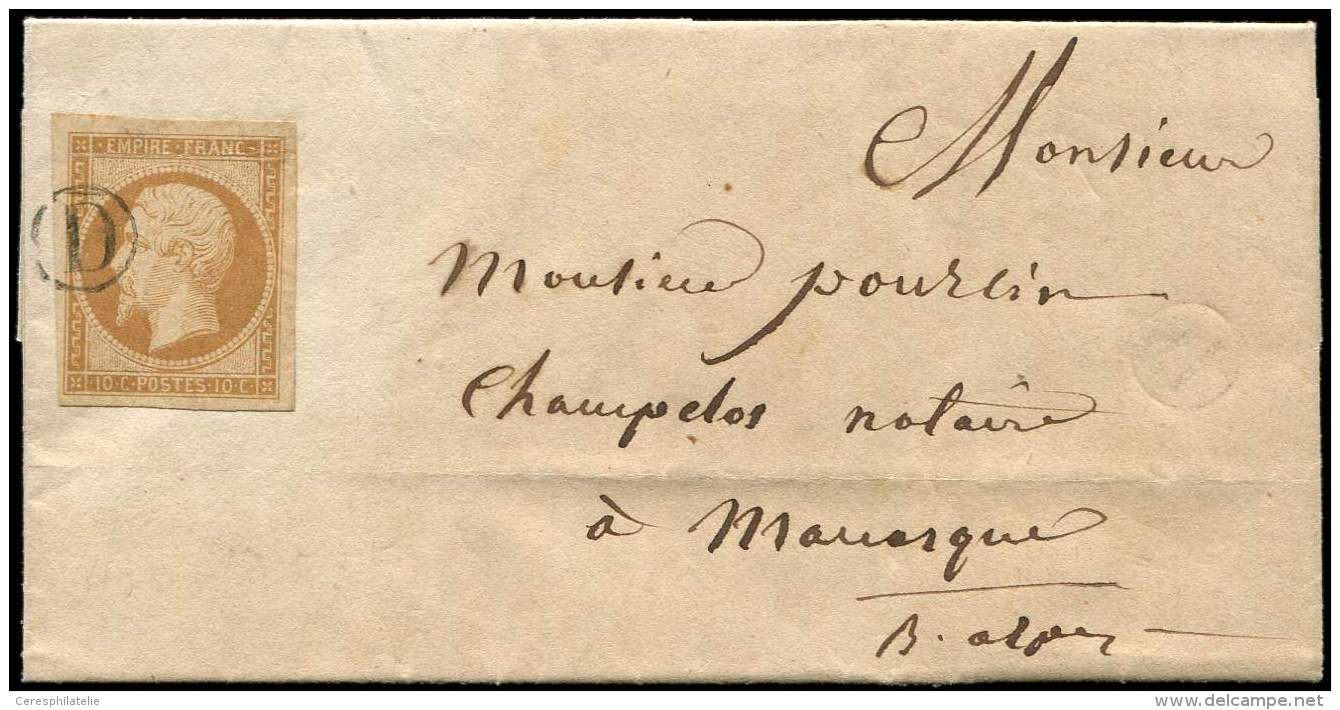 EMPIRE · FRANC ·
D
10 · C · POSTES · 10 · C ·
Monsieur
Monsieur pourcin
Champclos notaire
à Manosque
B. alpes
Ceresphilatelie
www.delcampe.net